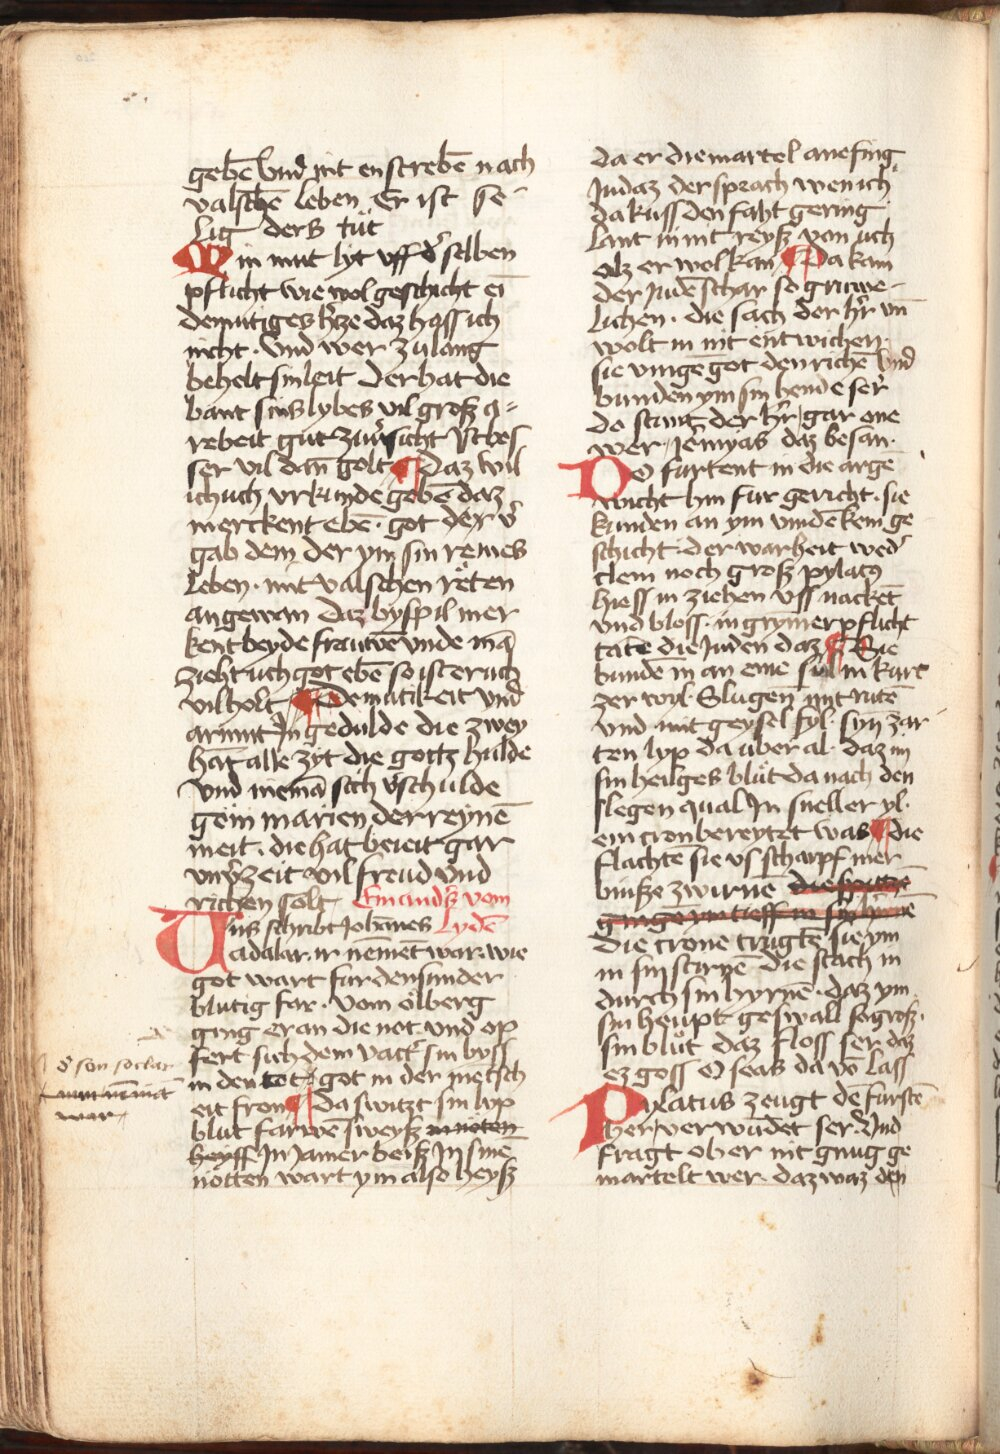 gebē vnd nit enstrebē nach
valschē leben Er ist se-
lig ders tůt
Min mut lyt vff d̕ selben
pflicht wie wol geschicht ei̅
demůtiges h̕ze daz hass ich
nicht · vnd wer zu lang
behelt sin leit Der hat die
bant sins lybes vil groß a=
rebeit gut zuv̕sicht ist bes
ser vil dan̅ golt ¶ Daz wil
ich uch vrkunde gebē daz
merckent ebē · got der v̕
gab dem der ym sin reines
leben · mit valschen reten
angewan daz byspil mer
kent beyde frauwē vnde mā
zieht uch got ebē so ist er uch
vil holt ¶ Demutikeit vnd
armut In gedulde die zwey
hāt alle zyt die gottz hulde
vnd niemā sich v̕schulde
gein marien der reynē
meit . die hat bereit gar
vnv̕zeit vil freud vnd
richen solt Ein and̕s vom
Uns schribt Johānes Lydē
adalar . nr nēmet war . wie
got wart fur den sunder
blutig far · vom ölberg
ging er an die not vnd op
fert sich dem vatt̕ sin buss
in den tot got in der mētsch
eit fron ¶ Da switzt sin lyp
blut farwe sweyß in nöten
heyß In Jamer beiß In sinē
nötten wart ym also heyß
d̕ son soclar
nun nēmēt
war
da er die martel anefing
Judaz der sprach wen ich
da kuss den faht gering
lant in nit reyß von uch
alz er wol kan ¶ Da kam
der Juden schar so gruwe-
lichen · die sach der h̕r vn̅
wolt in nit entwichen
sie vingē got den richē vnd
bunden ym sin hende ser
do stunt der h̕r gar one
wer Jemyas daz besan ·
Do furtent in die argē
wicht hin fur gericht · sie
kunden an ym vindē kein ge
schicht · der warheit wed̕
clein noch groß pylat9
hiess in ziehen vss nacket
vnd bloss · in grymer pflicht
tatē die Juden daz ¶ Sie
bundē in an eine sul in kurt
zer wyl · Slugen mit rutē
vnd mit geysel fyl · syn zar
ten lyp da uber al · daz im
sin heilges blůt da nach den
slegen qual In sneller yl ·
ein cron bereytet was ¶ die
flachtē sie vs scharpf mer
binße zwurne die spitze
gingē ym tieff in sin hirnē
Die crone trugtē sie ym
in sin stirnē die stach in
durch sin hyrnē · daz ym
sin heupt geswall so groß ·
sin blůt daz floss ser daz
ez goss O seas da vō lass
Pylatus zeugt dē furstē
her verwūdet ser · vnd
fragt ob er nit gnug ge
martelt wer · daz waz den